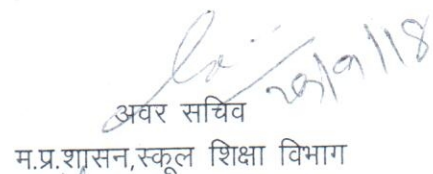 अवर सचिव
म.प्र.शासन,स्कूल शिक्षा विभाग